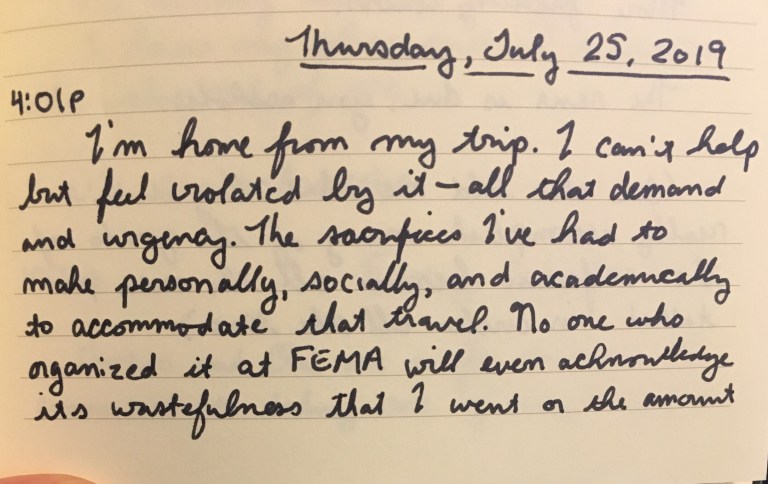 Thursday, July 25, 2019
4:01P
I'm home from my trip. I can't help
but feel violated by it – all that demand
and urgency. The sacrifices I've had to
make personally, socially, and academically
to accommodate that travel. No one who
organized it at FEMA will even acknowledge
its wastefulness that I went or the amount